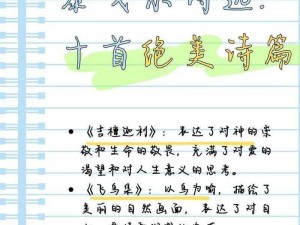 十首绝美诗篇
• 《吉檀迦利》：表达了对神的崇
敬和生命的敬畏，充满了对爱的
渴望和对人生意义的思考。
• 《飞鸟集》：以鸟为喻，描绘了
美丽的自然画面，表达了对自